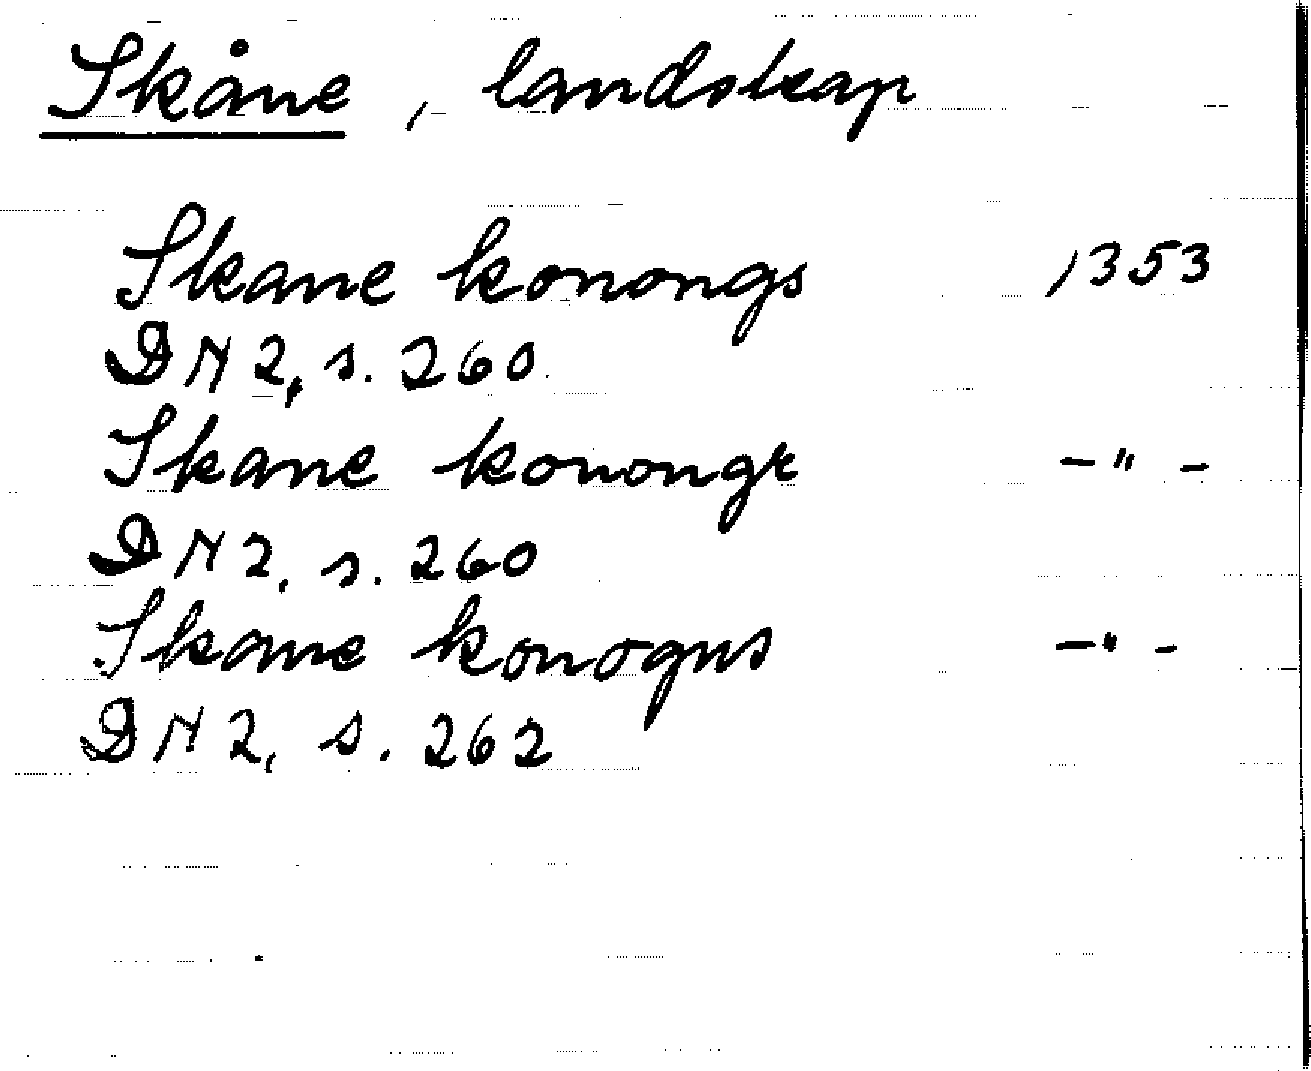 Skåne, landskap
Skane konongs 1353
DN 2, s. 260.
Skane konongr -"-
DN 2, s. 260
Skane konogns -"-
DN 2, s. 262